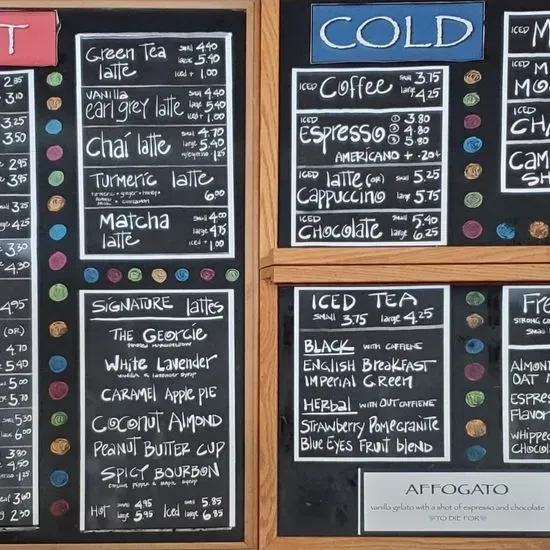 T
2.85
3.10
3.25
3.50
2.95
3.95
small 3.25
large 4.25
3.30
4.30
4.95
(OR)
4.70
5.40
small 5.00
large 5.70
small 5.30
large 6.00
3.80
4.50
3.60
2.30
Green Tea small 4.40
latte large 5.40
iced + 1.00
Vanilla small 4.40
earl grey latte large 5.40
iced + 1.00
Chai latte small 4.70
large 5.40
Turmeric latte
6.00
Matcha small 4.00
latte large 4.75
iced + 1.00
Signature lattes
The Georgie
White Lavender
Caramel Apple Pie
Coconut Almond
Peanut Butter Cup
Spicy Bourbon
Hot small 4.95 Iced small 5.85
large 5.95 large 6.85
COLD
ICED Coffee small 3.75
large 4.25
ICED
Espresso ① 3.80
② 4.80
③ 5.80
AMERICANO + .20¢
ICED
latte (OR) small 5.25
Cappuccino large 5.75
ICED small 5.40
Chocolate large 6.25
ICED
M
ICED M
Mo
ICED
Cha
Cam
Sh
ICED TEA
small 3.75 large 4.25
Black with caffiene
English Breakfast
Imperial Green
Herbal with out caffiene
Strawberry Pomegranite
Blue Eyes Fruit blend
Fr
STRONG CO
Almond
Oat M
Espres
Flavor
Whipped
Chocol
AFFOGATO
vanilla gelato with a shot of espresso and chocolate
TO DIE FOR